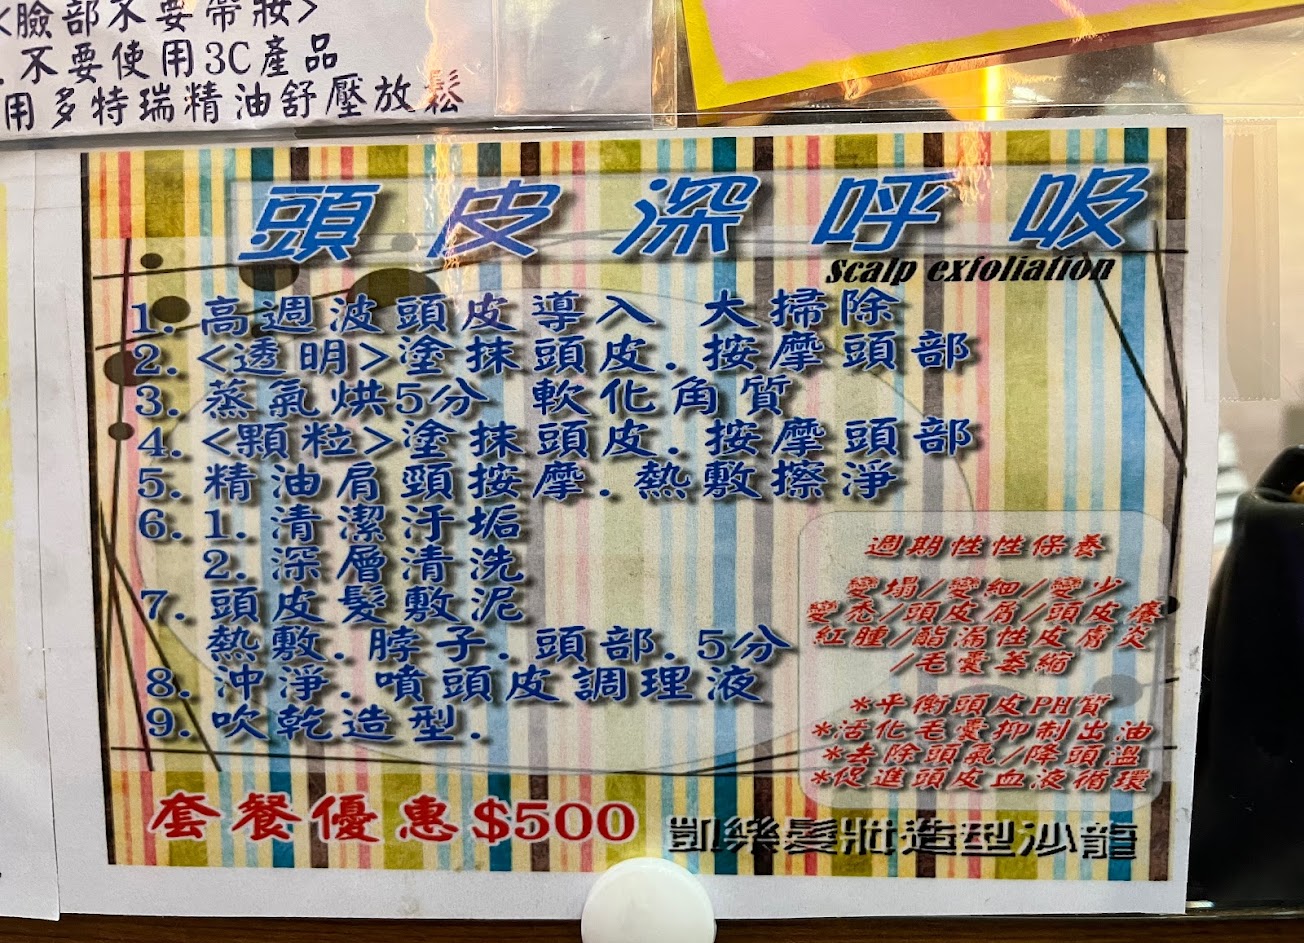 <臉部不要帶妝>
.不要使用3C產品
用多特瑞精油舒壓放鬆
頭皮深呼吸
Scalp exfoliation
1.高週波頭皮導入 大掃除
2.<透明>塗抹頭皮.按摩頭部
3.蒸氣烘5分 軟化角質
4.<顆粒>塗抹頭皮.按摩頭部
5.精油肩頸按摩.熱敷擦淨
6.1.清潔汙垢
2.深層清洗
7.頭皮髮敷泥
熱敷.脖子.頭部.5分
8.沖淨.噴頭皮調理液
9.吹乾造型.
週期性性保養
變塌/變細/變少
變禿/頭皮屑/頭皮癢
紅腫/酯漏性皮膚炎
/毛囊萎縮
*平衡頭皮PH質
*活化毛囊抑制出油
*去除頭氣/降頭溫
*促進頭皮血液循環
套餐優惠$500
凱樂髮妝造型沙龍